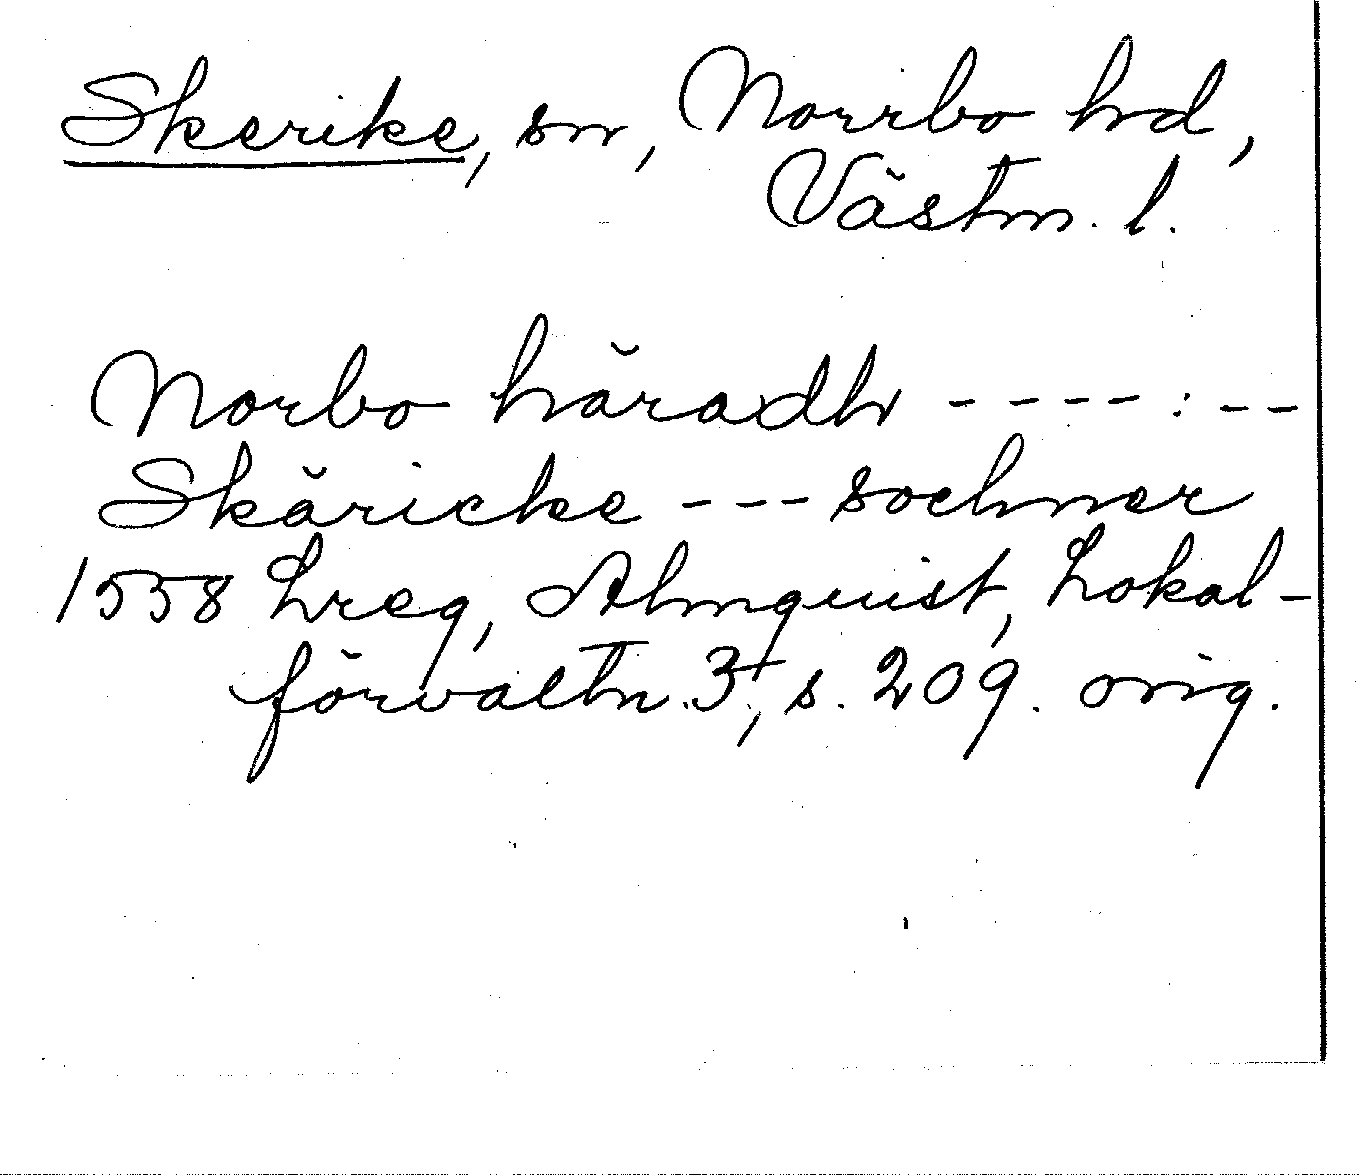 Skerike, sn, Norrbo hd,
Västm. l.
Norbo häradh - - - - : - -
Skäricke - - - sochner
1558 Lreg, Almquist, Lokal-
förvaltn. 3, s. 209. orig.